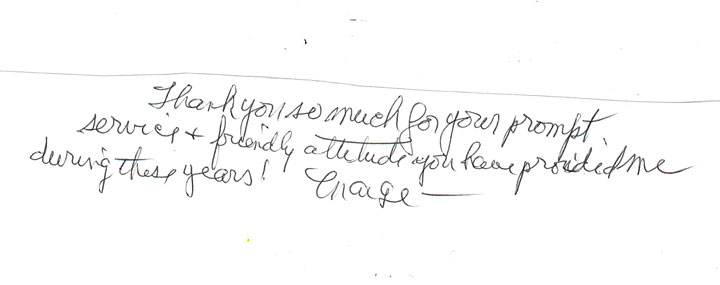 Thank you so much for your prompt
service + friendly attitude you have provided me
during these years!